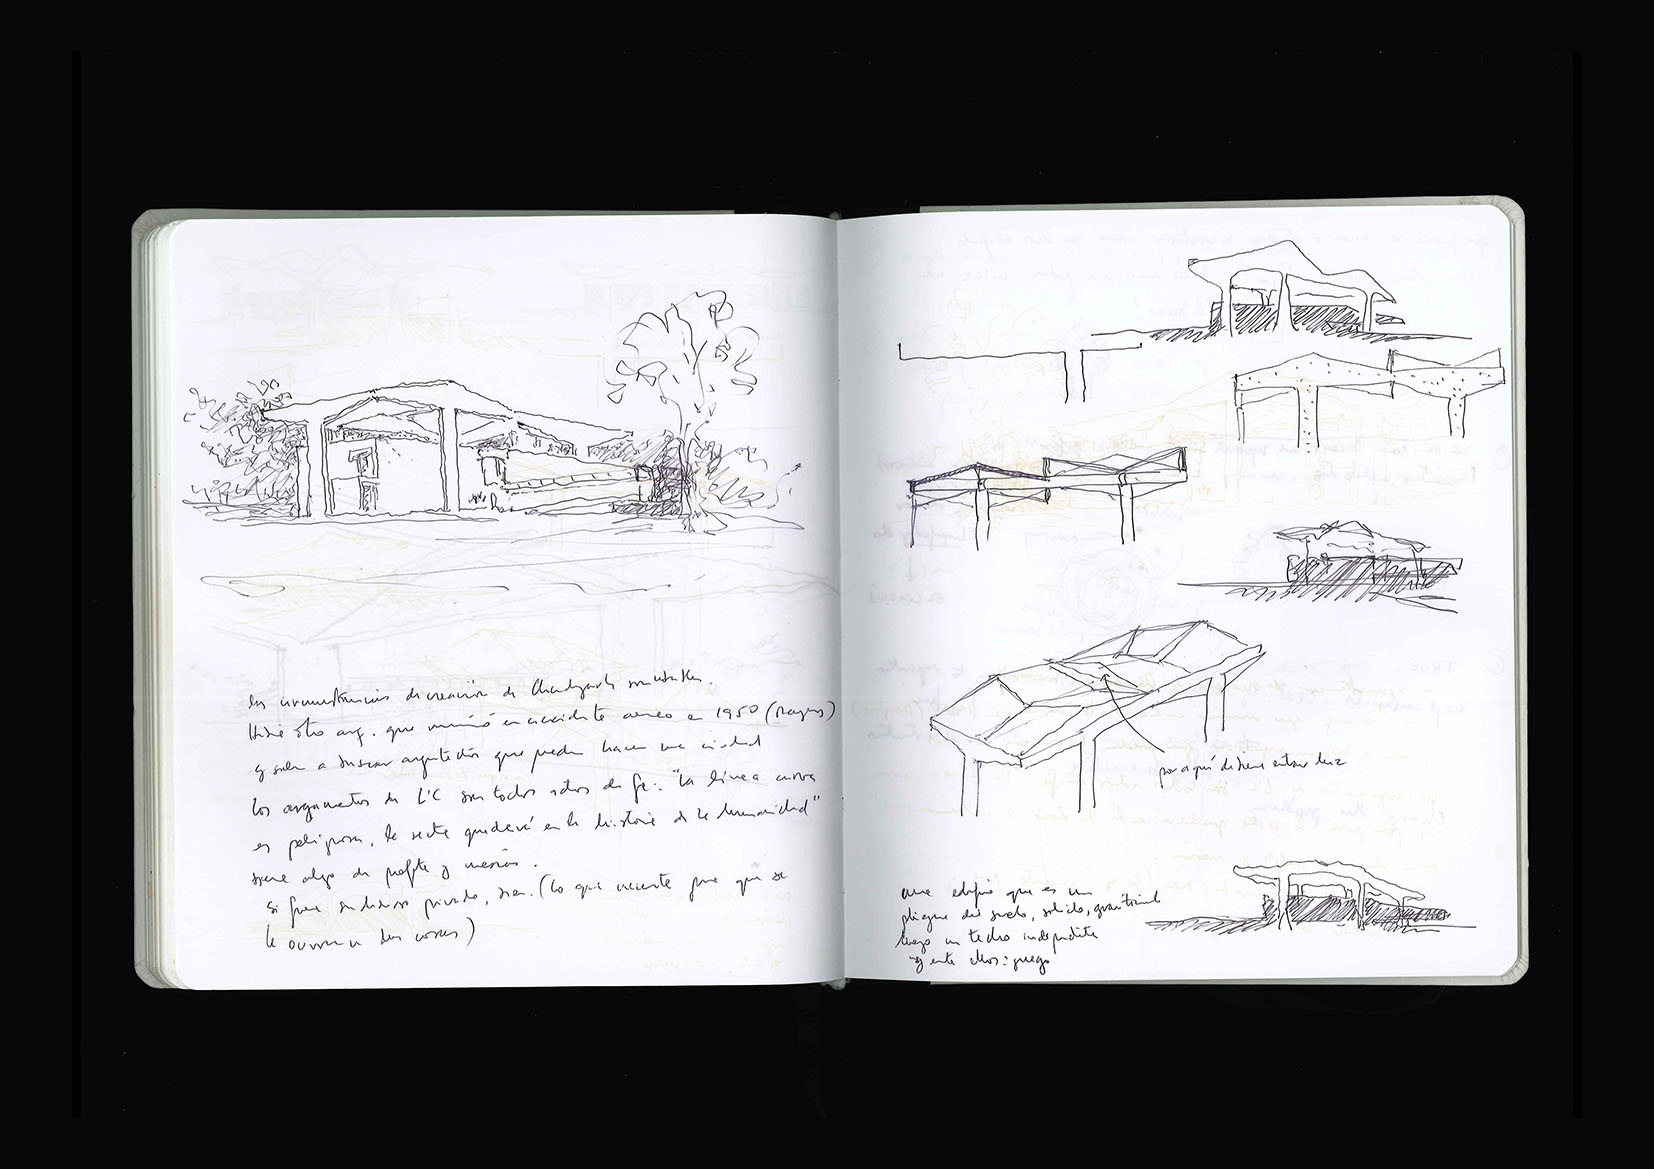 las circunstancias de creación de Chandigarh son
otro arq. que murió en accidente aéreo en 1950
y sale a buscar arquitectos que puedan hacer una ciudad
los argumentos de L'C son todos actos de fe: "la línea curva
es peligrosa, la recta quedará en la historia de la humanidad"
tiene algo de profeta y mesías.
si fuera un discurso privado, bien. (lo que necesite para que se
le ocurran las cosas)
por aquí debiera entrar luz
un edificio que es un
pliegue del suelo, sólido, gravitacional
luego un techo independiente
y entre ellos: juego